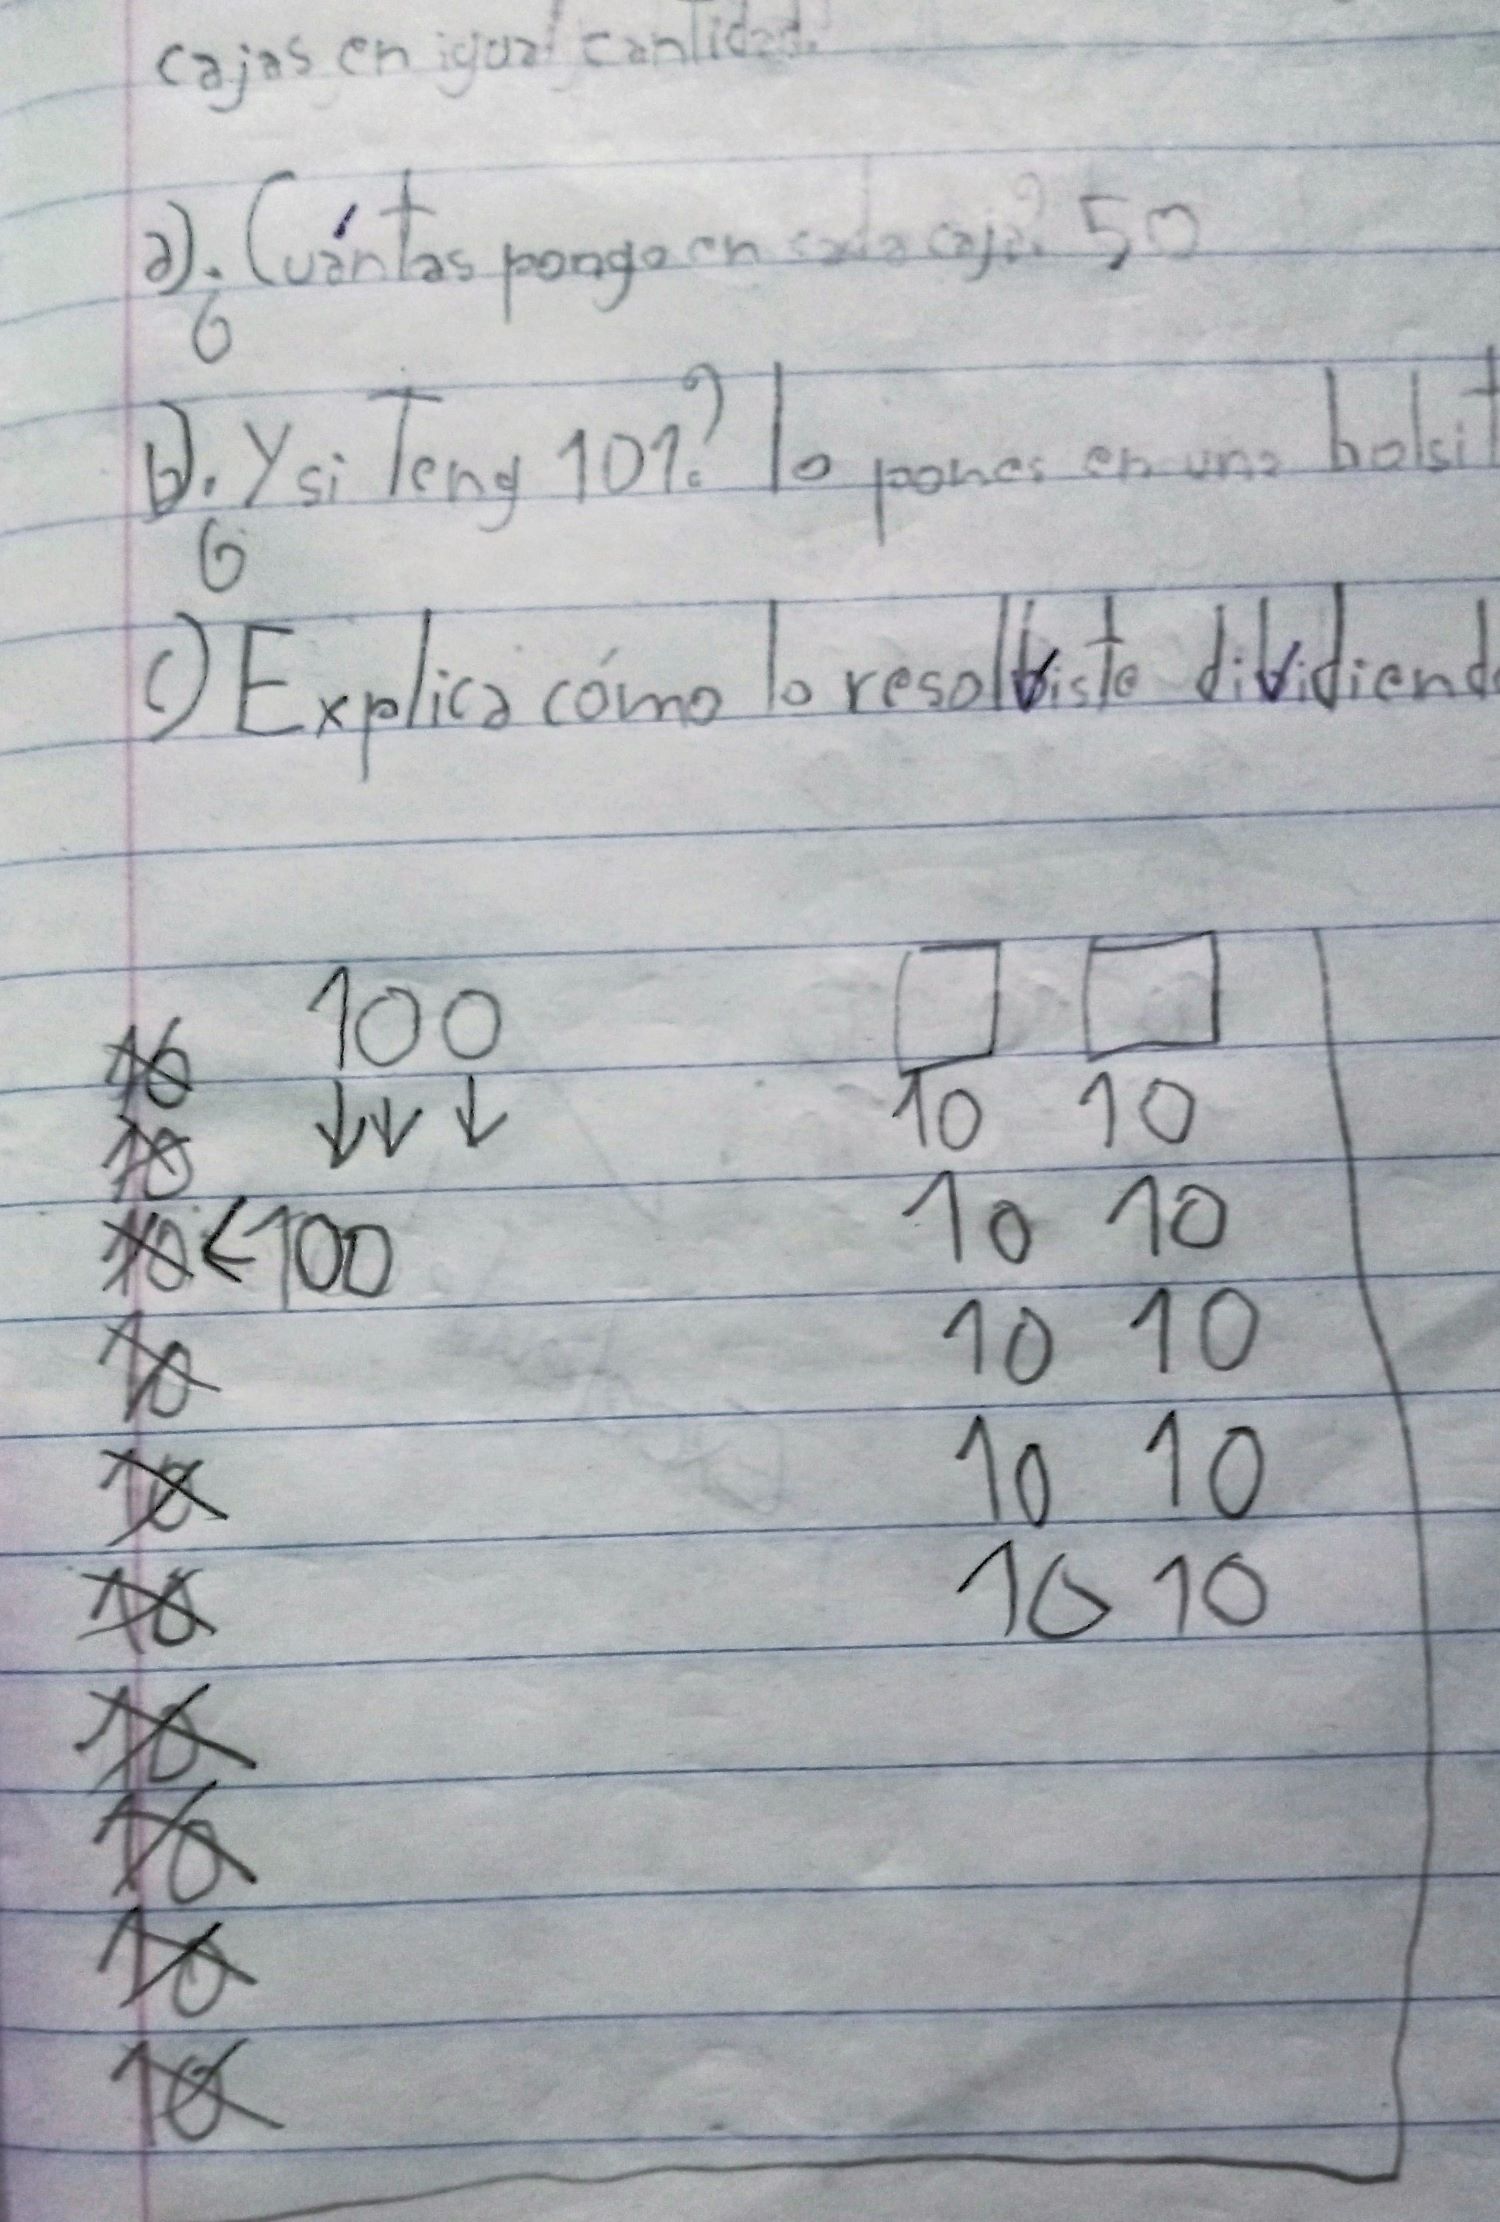 cajas en igual cantidad.
a). Cuántas pongo en cada caja? 50
6
b). Y si Teng 101? lo pones en una bolsit
6
c) Explica cómo lo resolviste dividiendo
100
10
10
10 < 100
10
10
10
10
10
10
10
10 10
10 10
10 10
10 10
10 10